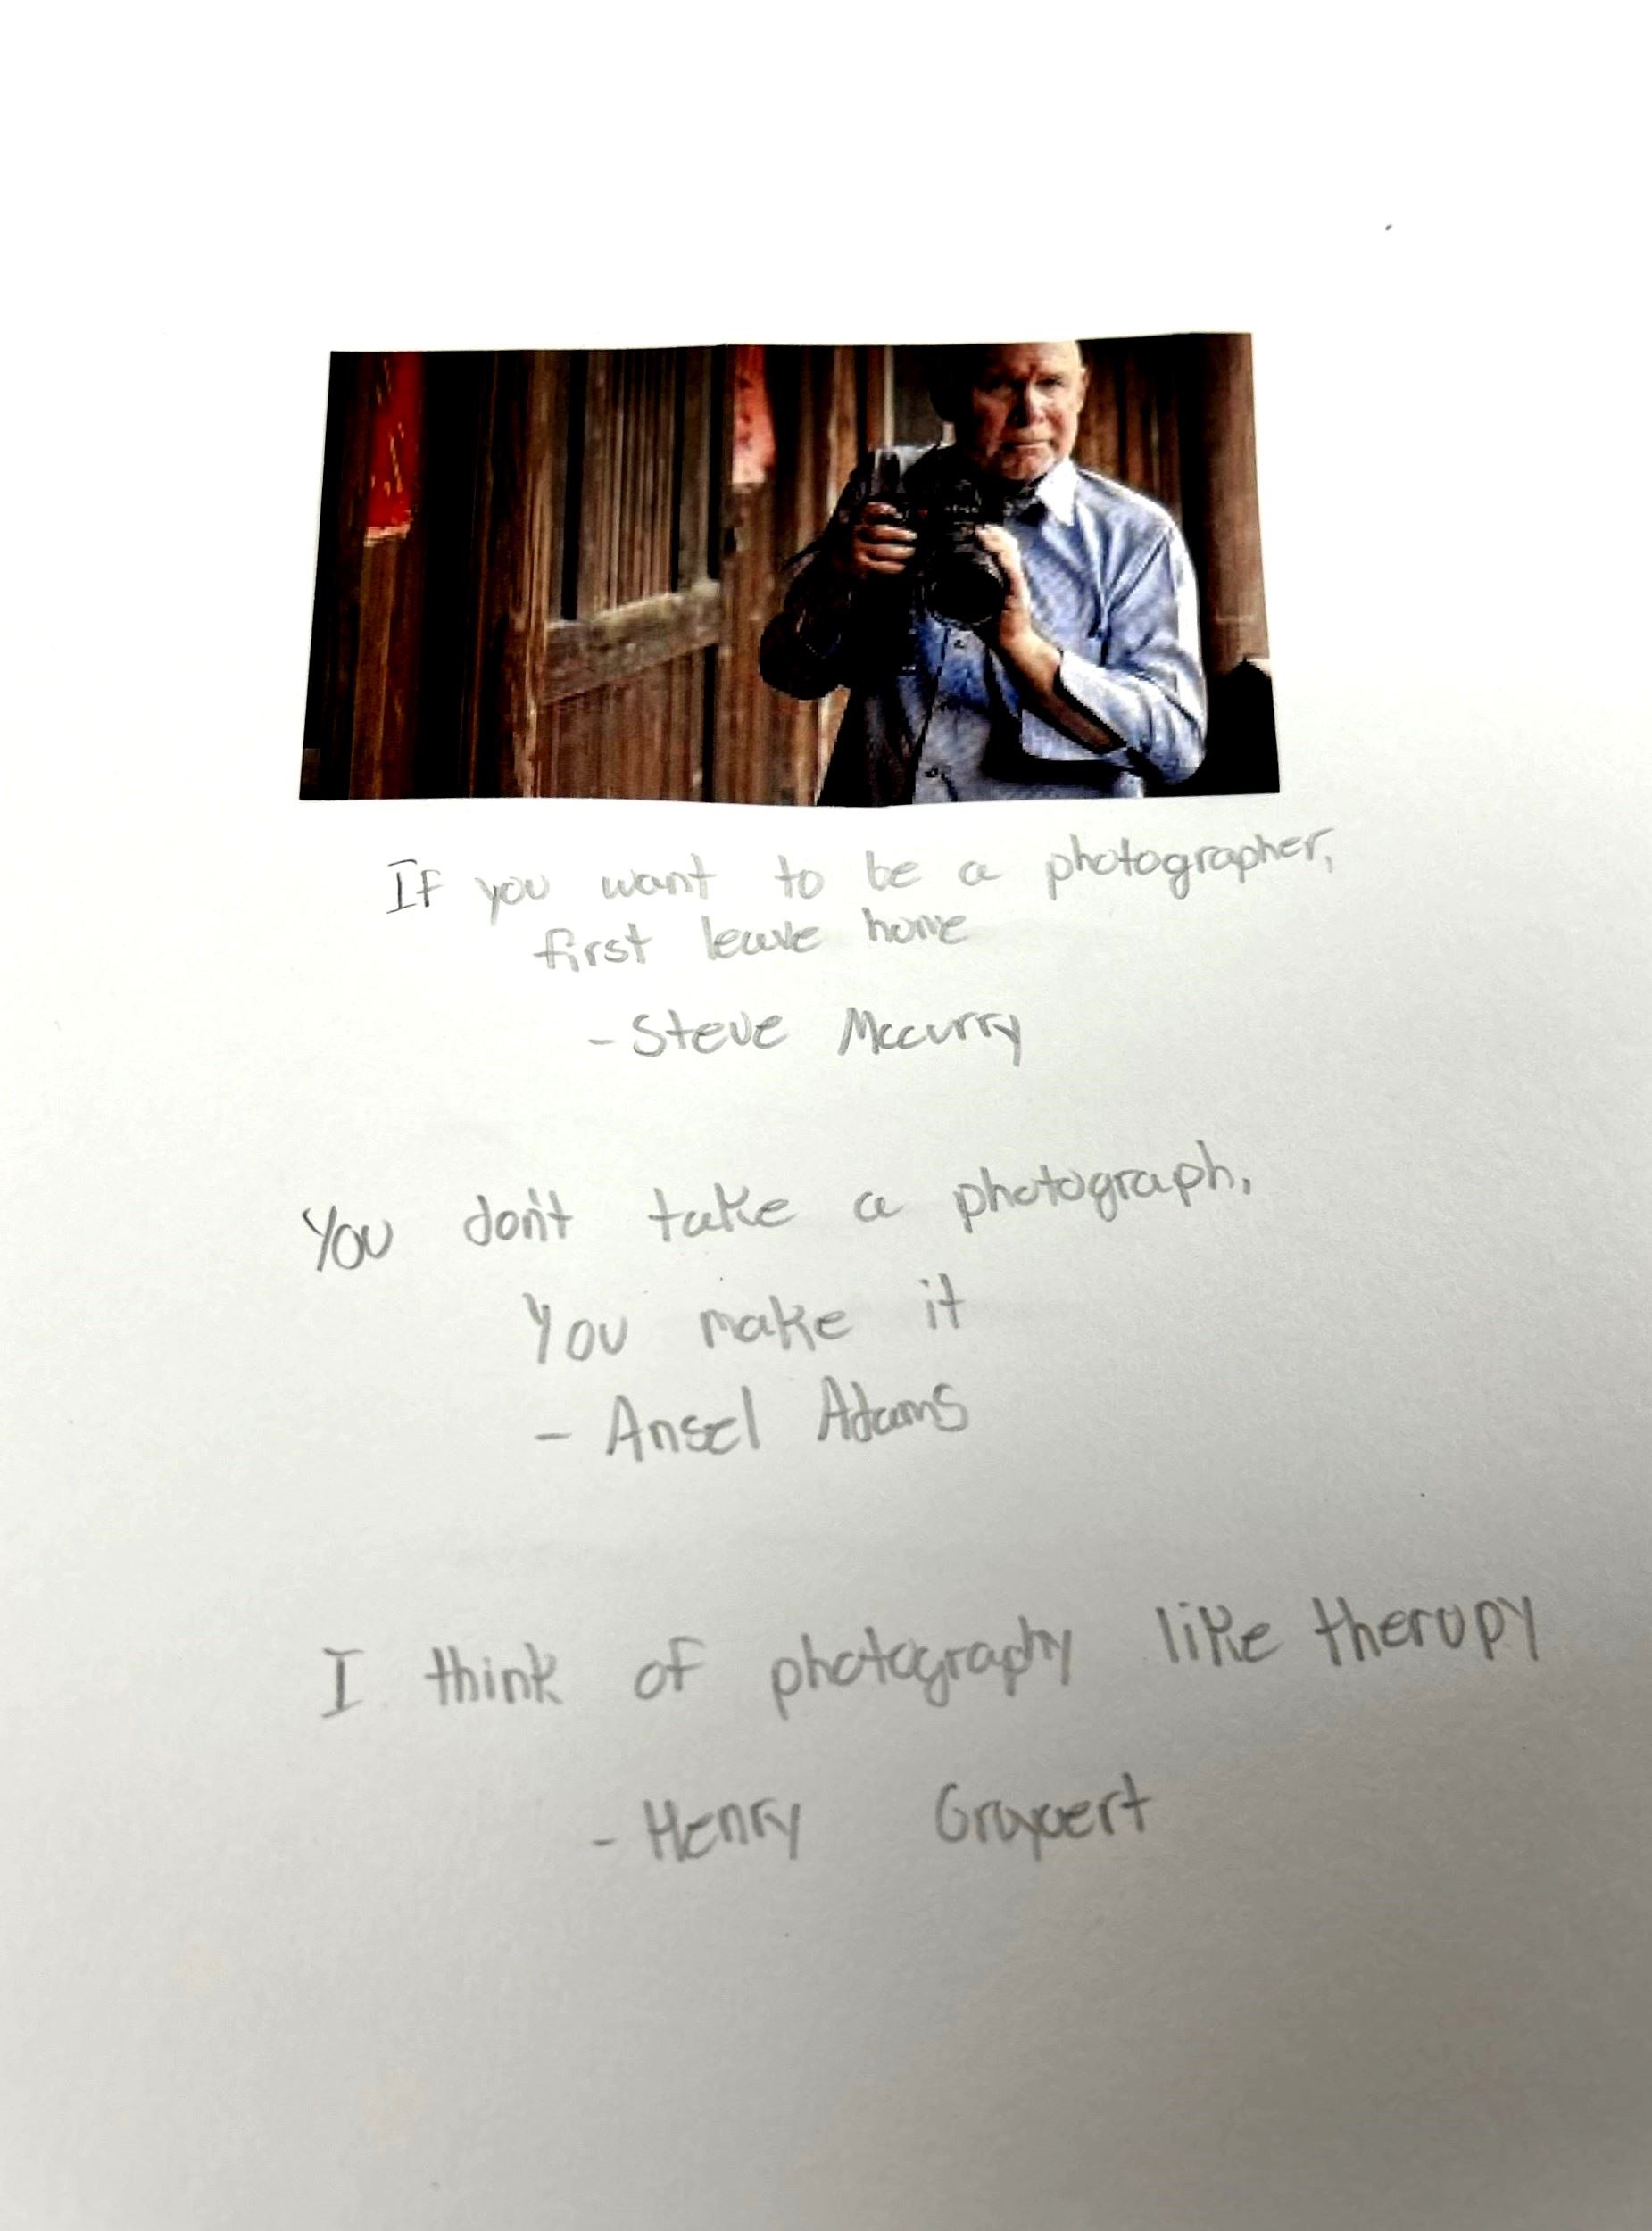 If you want to be a photographer,
first leave home
- Steve Mccurry
You don't take a photograph,
You make it
- Ansel Adams
I think of photography like therapy
- Henry Gruyaert